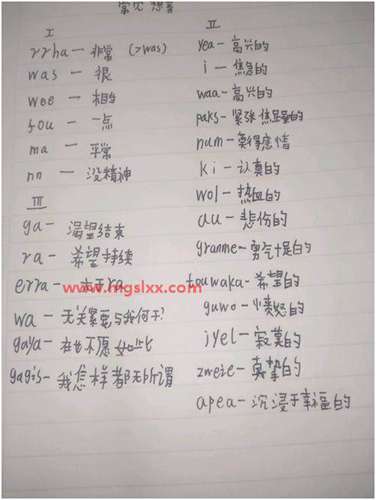 常见想音
I
rrha — 非常 (>was)
was — 很
wee — 相当
fou — 一点
ma — 平常
nn — 没精神
II
yea — 高兴的
i — 焦急的
waa — 高兴的
paks — 紧张
num — 莫得感情
ki — 认真的
wol — 热血的
au — 悲伤的
granme — 勇气十足的
fouwaka — 希望的
guwo — 愤怒的
iyel — 寂寞的
zweie — 真挚的
apea — 沉浸于幸福的
III
ga — 渴望结束
ra — 希望持续
erra — 大于ra
wa — 无关紧要与我何干?
gaya — 在也不愿如此
gagis — 我怎样都无所谓
www.mgslxx.com